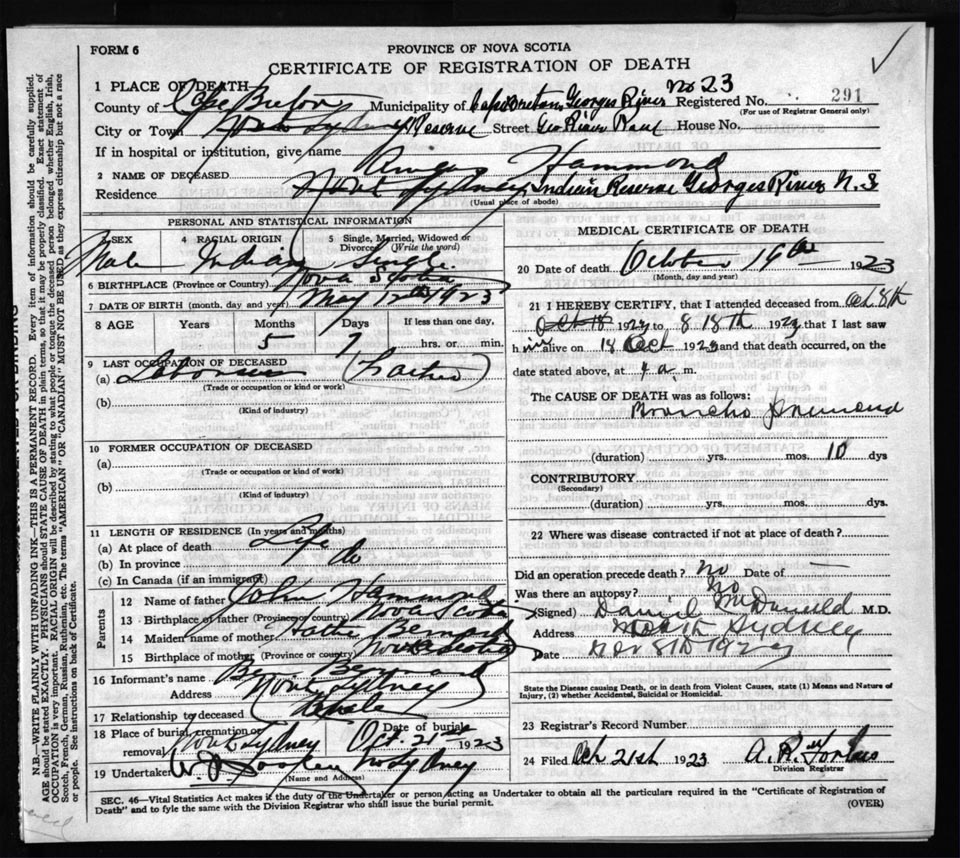 FORM 6
PROVINCE OF NOVA SCOTIA
CERTIFICATE OF REGISTRATION OF DEATH
1 PLACE OF DEATH
No 23
County of Cape Breton Municipality of Cape Breton Georges River Registered No. 291
(For use of Registrar General only)
City or Town North Sydney Reserve Street Geo River Road House No.
If in hospital or institution, give name
2 NAME OF DECEASED Hammond
Residence North Sydney Indian Reserve Georges River N. S
(Usual place of abode)
PERSONAL AND STATISTICAL INFORMATION
3 SEX 4 RACIAL ORIGIN 5 Single, Married, Widowed or Divorced (Write the word)
Male Indian Single
6 BIRTHPLACE (Province or Country) Nova Scotia
7 DATE OF BIRTH (month, day and year) May 12th 1923
8 AGE Years Months Days If less than one day,
5 7 hrs. or min.
9 LAST OCCUPATION OF DECEASED
(a) Laborer (Father)
(Trade or occupation or kind of work)
(b)
(Kind of industry)
10 FORMER OCCUPATION OF DECEASED
(a)
(Trade or occupation or kind of work)
(b)
(Kind of industry)
11 LENGTH OF RESIDENCE (In years and months)
(a) At place of death Life
(b) In province do
(c) In Canada (if an immigrant)
Parents
12 Name of father John Hammond
13 Birthplace of father (Province or country) Nova Scotia
14 Maiden name of mother Bernard
15 Birthplace of mother (Province or country) Nova Scotia
16 Informant's name Bernard
Address North Sydney
17 Relationship to deceased
18 Place of burial, cremation or removal North Sydney Date of burial Oct. 21st 1923
19 Undertaker W. J. Dooley N Sydney
(Name and Address)
MEDICAL CERTIFICATE OF DEATH
20 Date of death October 19th 1923
(Month, day and year)
21 I HEREBY CERTIFY, that I attended deceased from Oct 8th
Oct 18 1923 to 8 18th 1923 that I last saw
him alive on 18 Oct 1923 and that death occurred, on the
date stated above, at 4 a. m.
The CAUSE OF DEATH was as follows:
Broncho Pneumonia
(duration) yrs. mos. 10 dys
CONTRIBUTORY
(Secondary)
(duration) yrs. mos. dys.
22 Where was disease contracted if not at place of death?
Did an operation precede death? no Date of —
Was there an autopsy? No
(Signed) Daniel McDonald M.D.
Address North Sydney
Date
State the Disease causing Death, or in death from Violent Causes, state (1) Means and Nature of Injury, (2) whether Accidental, Suicidal or Homicidal.
23 Registrar's Record Number
24 Filed Oct 21st 1923 A. R. Forbes
Division Registrar
SEC. 46—Vital Statistics Act makes it the duty of the Undertaker or person acting as Undertaker to obtain all the particulars required in the "Certificate of Registration of
Death" and to fyle the same with the Division Registrar who shall issue the burial permit.
(OVER)
N.B.—WRITE PLAINLY WITH UNFADING INK—THIS IS A PERMANENT RECORD. Every item of information should be carefully supplied.
AGE should be stated EXACTLY. PHYSICIANS should STATE CAUSE OF DEATH in plain terms, so that it may be properly classified. Exact statement of
OCCUPATION is very important. RACIAL ORIGIN will be described by stating to what people or tongue the deceased person belonged whether English, Irish,
Scotch, French, German, Russian, Ruthenian, etc. The terms "AMERICAN" OR "CANADIAN" MUST NOT BE USED as they express citizenship but not a race
or people. See instructions on back of Certificate.